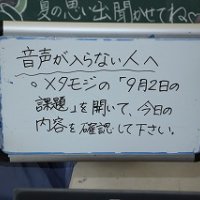 夏の思い出聞かせてね
音声が入らない人へ
。メタモジの「9月2日の
課題」を開いて、今日の
内容を確認して下さい。